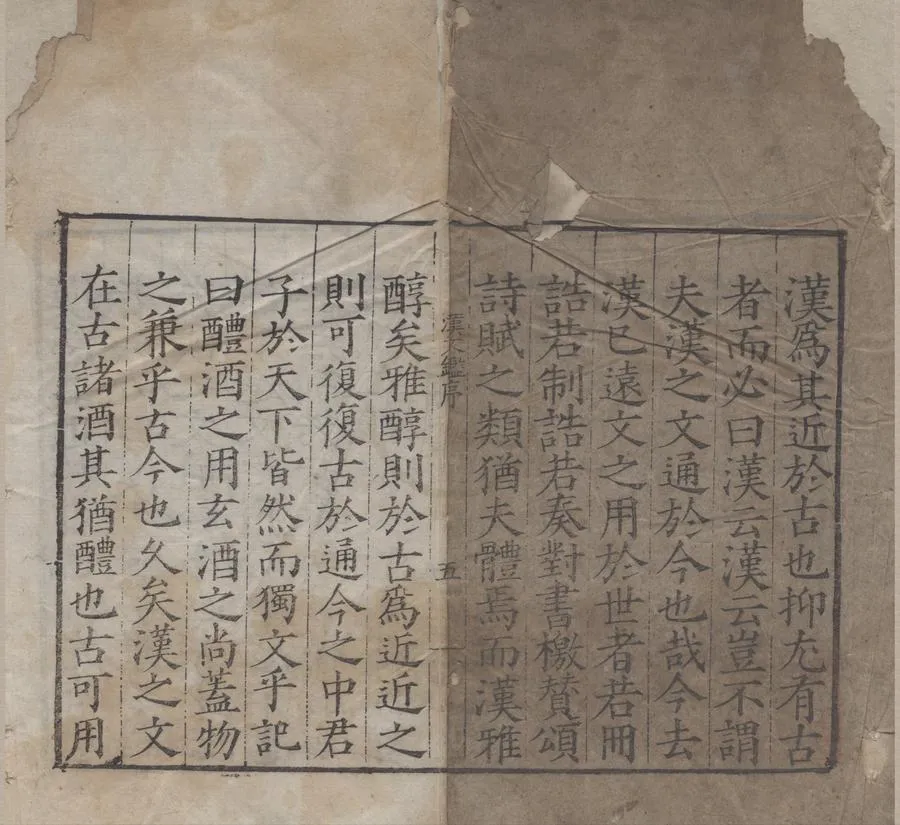 漢爲其近於古也抑尤有古
者而必曰漢云漢云豈不謂
夫漢之文通於今也哉今去
漢已遠文之用於世者若冊
誥若制誥若奏對書檄賛頌
詩賦之類猶夫體焉而漢雅
漢文鑑序
五
醇矣雅醇則於古爲近近之
則可復復古於通今之中君
子於天下皆然而獨文乎記
曰醴酒之用玄酒之尚蓋物
之兼乎古今也久矣漢之文
在古諸酒其猶醴也古可用